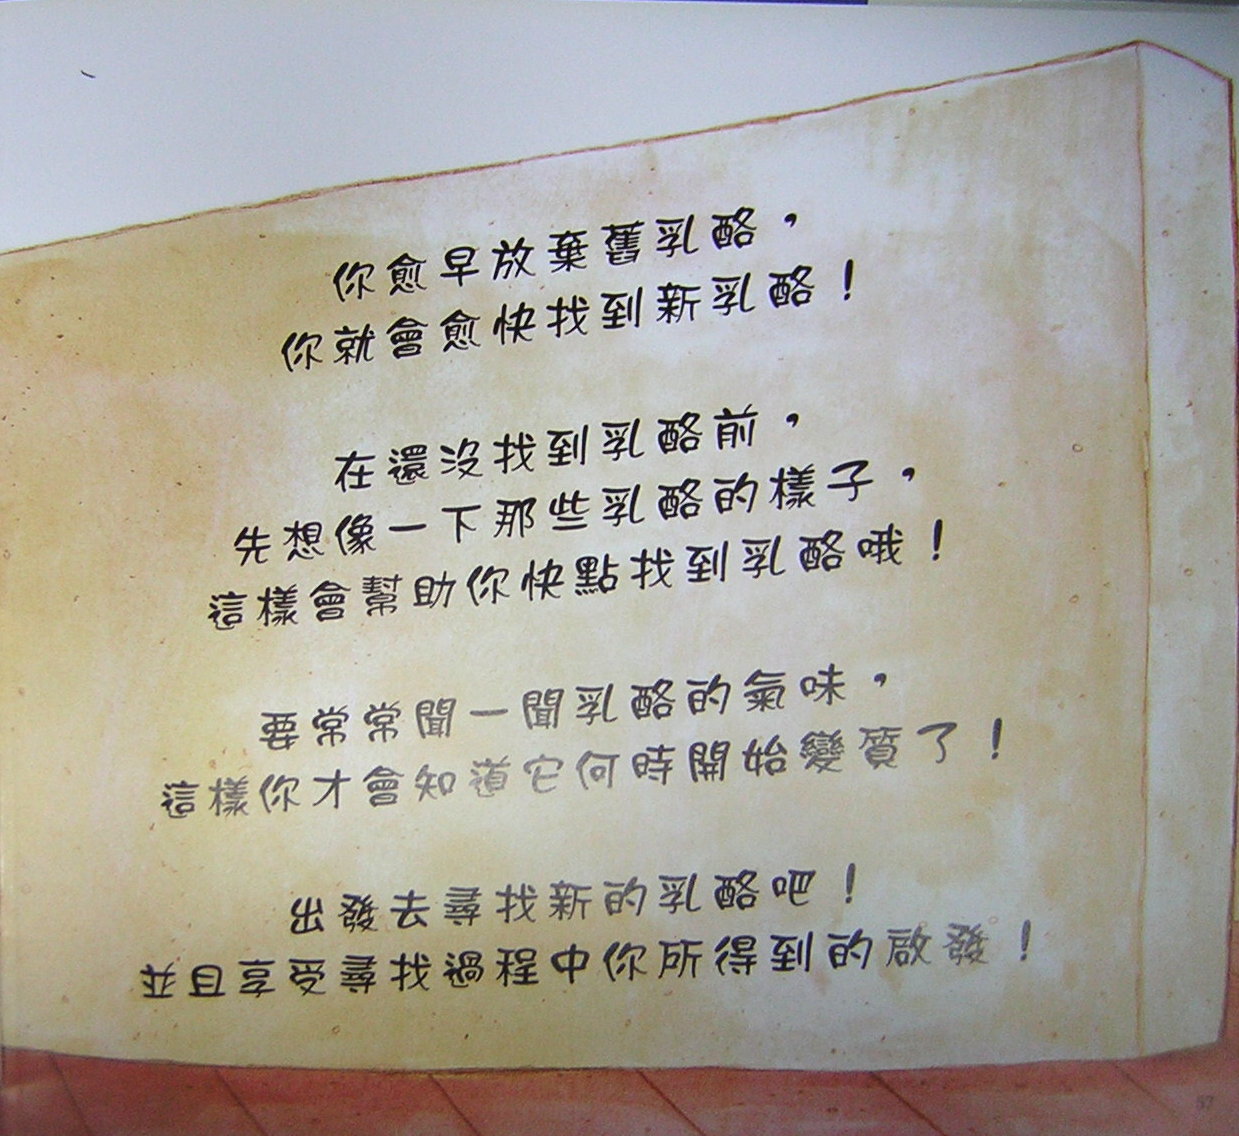 你愈早放棄舊乳酪，
你就會愈快找到新乳酪！
在還沒找到乳酪前，
先想像一下那些乳酪的樣子，
這樣會幫助你快點找到乳酪哦！
要常常聞一聞乳酪的氣味，
這樣你才會知道它何時開始變質了！
出發去尋找新的乳酪吧！
並且享受尋找過程中你所得到的啟發！
57